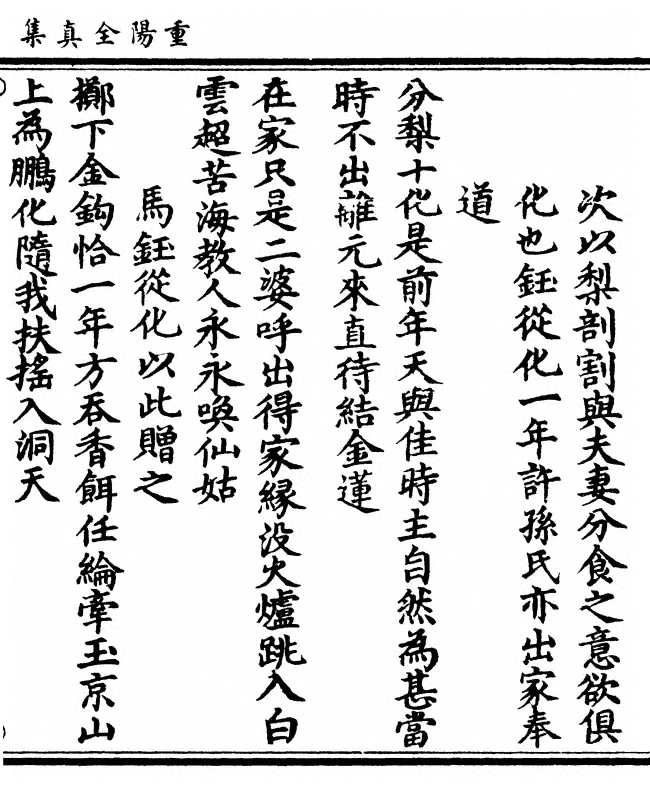 重陽全真集
次以梨剖割與夫妻分食之意欲俱
化也鈺從化一年許孫氏亦出家奉
道
分梨十化是前年天與佳時主自然為甚當
時不出離元來直待結金蓮
在家只是二婆呼出得家緣没火爐跳入白
雲超苦海教人永永喚仙姑
馬鈺從化以此贈之
擲下金鈎恰一年方吞香餌任綸牽玉京山
上為鵬化隨我扶搖入洞天